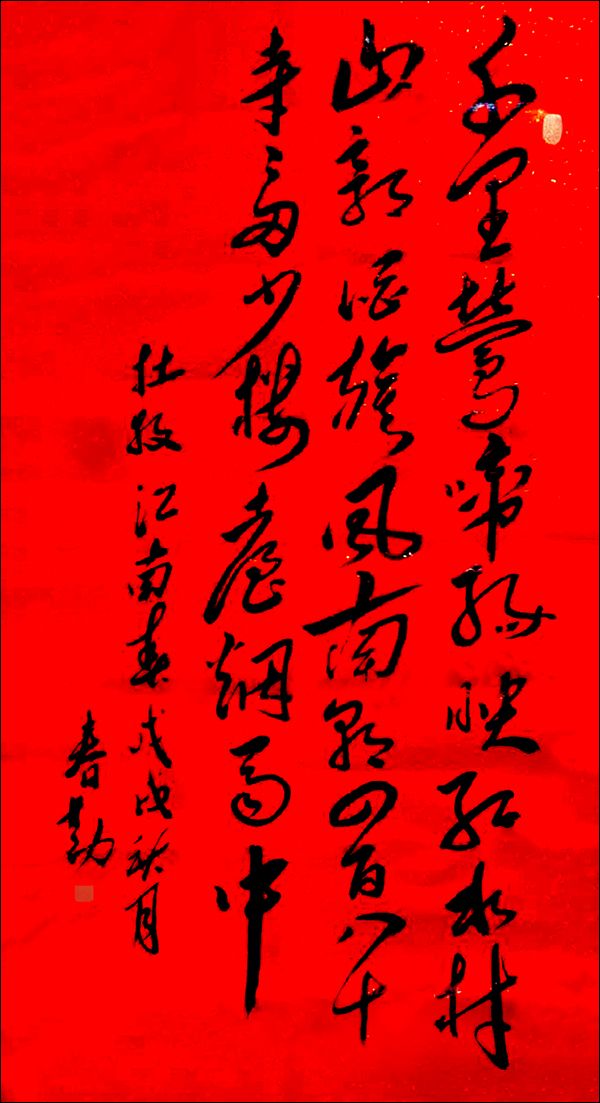 千里莺啼绿映红水村
山郭酒旗风南朝四百八十
寺多少楼台烟雨中
杜牧江南春戊戌秋月
春勤